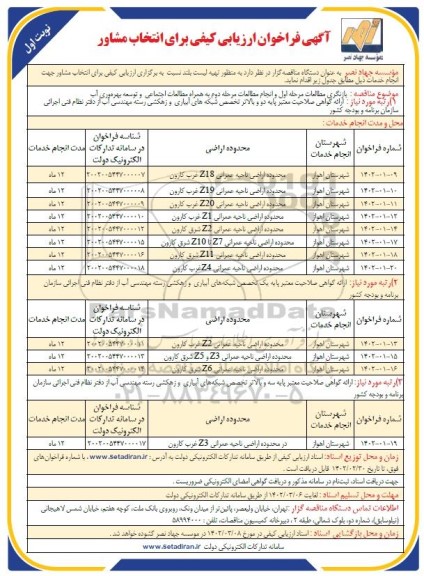 نوبت اول
آگهی فراخوان ارزیابی کیفی برای انتخاب مشاور
موسسه جهاد نصر
مؤسسه جهاد نصر به عنوان دستگاه مناقصه‌گزار در نظر دارد به منظور تهیه لیست بلند نسبت به برگزاری ارزیابی کیفی برای انتخاب مشاور جهت
انجام خدمات ذیل مطابق جدول زیر اقدام نماید.
موضوع مناقصه: بازنگری مطالعات مرحله اول و انجام مطالعات مرحله دوم به همراه مطالعات اجتماعی و توسعه بهره‌وری آب
۱) رتبه مورد نیاز: ارائه گواهی صلاحیت معتبر پایه دو و بالاتر تخصص شبکه های آبیاری و زهکشی رسته مهندسی آب از دفتر نظام فنی اجرائی
سازمان برنامه و بودجه کشور
محل و مدت انجام خدمات:
شماره فراخوان شهرستان انجام خدمات محدوده اراضی شناسه فراخوان در سامانه تدارکات الکترونیک دولت مدت انجام خدمات
۱۴۰۲-۰۱-۰۹ شهرستان اهواز محدوده اراضی ناحیه عمرانی Z18 غرب کارون ۱۲ ماه
۱۴۰۲-۰۱-۱۰ شهرستان اهواز محدوده اراضی ناحیه عمرانی Z19 غرب کارون ۱۲ ماه
۱۴۰۲-۰۱-۱۱ شهرستان اهواز محدوده اراضی ناحیه عمرانی Z20 غرب کارون ۱۲ ماه
۱۴۰۲-۰۱-۱۲ شهرستان اهواز محدوده اراضی ناحیه عمرانی Z1 غرب کارون ۱۲ ماه
۱۴۰۲-۰۱-۱۴ شهرستان اهواز محدوده اراضی ناحیه عمرانی Z2 شرق کارون ۱۲ ماه
۱۴۰۲-۰۱-۱۷ شهرستان اهواز محدوده اراضی ناحیه عمرانی Z7 تا Z10 شرق کارون ۱۲ ماه
۱۴۰۲-۰۱-۱۸ شهرستان اهواز محدوده اراضی ناحیه عمرانی Z11 شرق کارون ۱۲ ماه
۱۴۰۲-۰۱-۲۰ شهرستان اهواز محدوده اراضی ناحیه عمرانی Z4 غرب کارون ۱۲ ماه
۲) رتبه مورد نیاز: ارائه گواهی صلاحیت معتبر پایه یک تخصص شبکه‌های آبیاری و زهکشی رسته مهندسی آب از دفتر نظام فنی اجرائی سازمان
برنامه و بودجه کشور
شماره فراخوان شهرستان انجام خدمات محدوده اراضی شناسه فراخوان در سامانه تدارکات الکترونیک دولت مدت انجام خدمات
۱۴۰۲-۰۱-۱۳ شهرستان اهواز محدوده اراضی ناحیه عمرانی Z2 غرب کارون ۱۲ ماه
۱۴۰۲-۰۱-۱۵ شهرستان اهواز محدوده اراضی ناحیه عمرانی Z3 و Z5 شرق کارون ۱۲ ماه
۱۴۰۲-۰۱-۱۶ شهرستان اهواز محدوده اراضی ناحیه عمرانی Z6 شرق کارون ۱۲ ماه
۳) رتبه مورد نیاز: ارائه گواهی صلاحیت معتبر پایه سه و بالاتر تخصص شبکه‌های آبیاری و زهکشی رسته مهندسی آب از دفتر نظام فنی اجرائی سازمان
برنامه و بودجه کشور
شماره فراخوان شهرستان انجام خدمات محدوده اراضی شناسه فراخوان در سامانه تدارکات الکترونیک دولت مدت انجام خدمات
۱۴۰۲-۰۱-۱۹ شهرستان اهواز در محدوده اراضی ناحیه عمرانی Z3 غرب کارون ۱۲ ماه
زمان و محل توزیع اسناد: اسناد ارزیابی کیفی از طریق سامانه تدارکات الکترونیکی دولت به آدرس: www.setadiran.ir با شماره فراخوان‌های
فوق، تا تاریخ ۱۴۰۲/۰۲/۳۰ قابل دریافت است.
جهت دریافت اسناد، ثبت‌نام در سامانه مذکور و دریافت گواهی امضای الکترونیکی ضروریست.
مهلت و محل تسلیم اسناد: لغایت ۱۴۰۲/۰۳/۰۶ از طریق سامانه تدارکات الکترونیکی دولت
اطلاعات تماس دستگاه مناقصه گزار: تهران، خیابان ولیعصر، پائین‌تر از میدان ونک، روبروی بانک ملت، کوچه هفتم، خیابان شمس لاهیجانی
(نیلوسابق)، شماره دو، بلوک شمالی، طبقه ۲، دبیرخانه کمیسیون مناقصات، تلفن: ۵۸۹۹۴۰۰۰
زمان و محل بازگشایی اسناد: اسناد ارزیابی کیفی در مورخ ۱۴۰۲/۰۳/۰۸ در موسسه جهاد نصر گشوده خواهد شد.
سامانه تدارکات الکترونیکی دولت www.setadiran.ir
ParsNamadData
۰۲۱-۸۸۳۴۹۶۷۰-۵